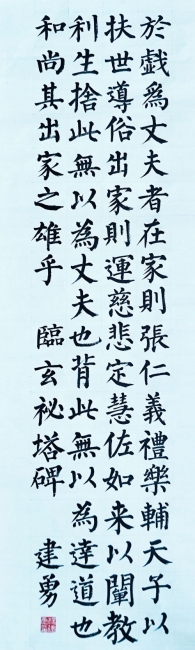 於戲為丈夫者在家則張仁義禮樂輔天子以
扶世導俗出家則運慈悲定慧佐如来以闡教
利生捨此無以為丈夫也背此無以為達道也
和尚其出家之雄乎 臨玄祕塔碑 建勇